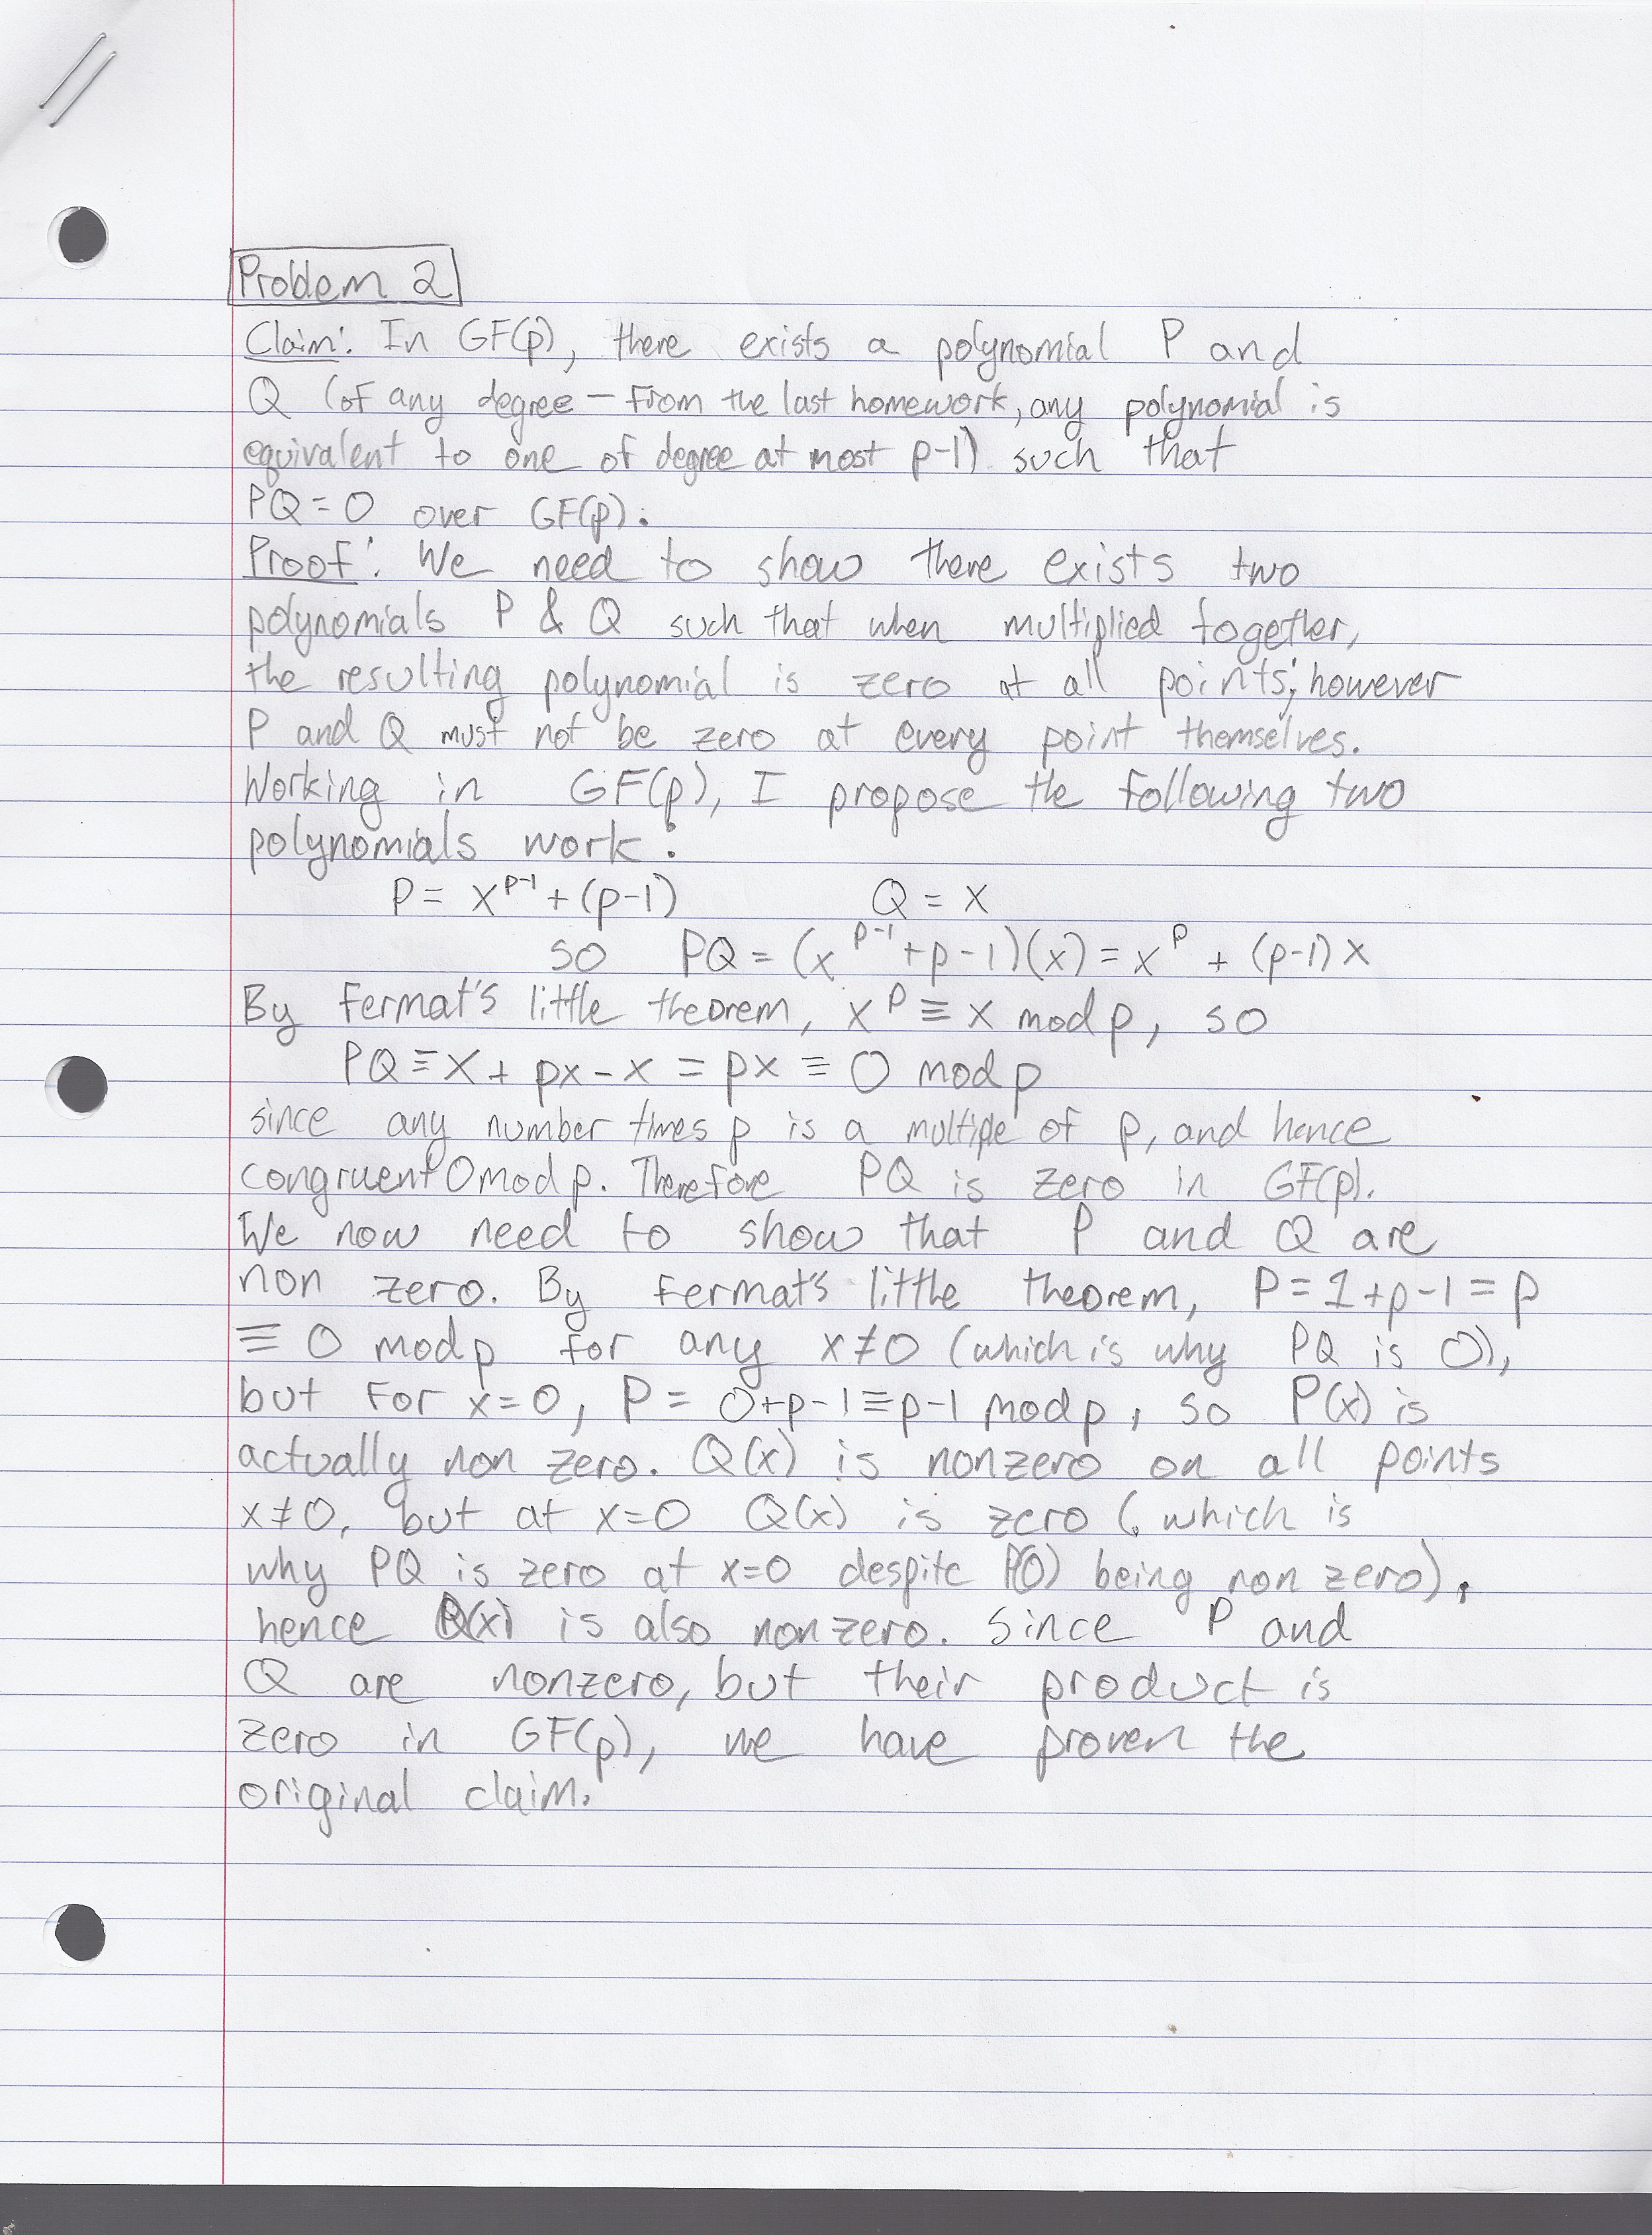 Problem 2
Claim: In GF(p), there exists a polynomial P and
Q (of any degree — from the last homework, any polynomial is
equivalent to one of degree at most p-1) such that
PQ = 0 over GF(p).
Proof: We need to show there exists two
polynomials P & Q such that when multiplied together,
the resulting polynomial is zero at all points; however
P and Q must not be zero at every point themselves.
Working in GF(p), I propose the following two
polynomials work:
P = x^{p-1} + (p-1) Q = x
so PQ = (x^{p-1} + p - 1)(x) = x^p + (p-1)x
By Fermat's little theorem, x^p ≡ x mod p, so
PQ ≡ x + px - x = px ≡ 0 mod p
since any number times p is a multiple of p, and hence
congruent 0 mod p. Therefore PQ is zero in GF(p).
We now need to show that P and Q are
non zero. By Fermat's little theorem, P = 1 + p - 1 = p
≡ 0 mod p for any x ≠ 0 (which is why PQ is 0),
but for x = 0, P = 0 + p - 1 ≡ p - 1 mod p, so P(x) is
actually non zero. Q(x) is nonzero on all points
x ≠ 0, but at x = 0 Q(x) is zero (which is
why PQ is zero at x = 0 despite P(0) being non zero),
hence Q(x) is also nonzero. Since P and
Q are nonzero, but their product is
zero in GF(p), we have proven the
original claim.